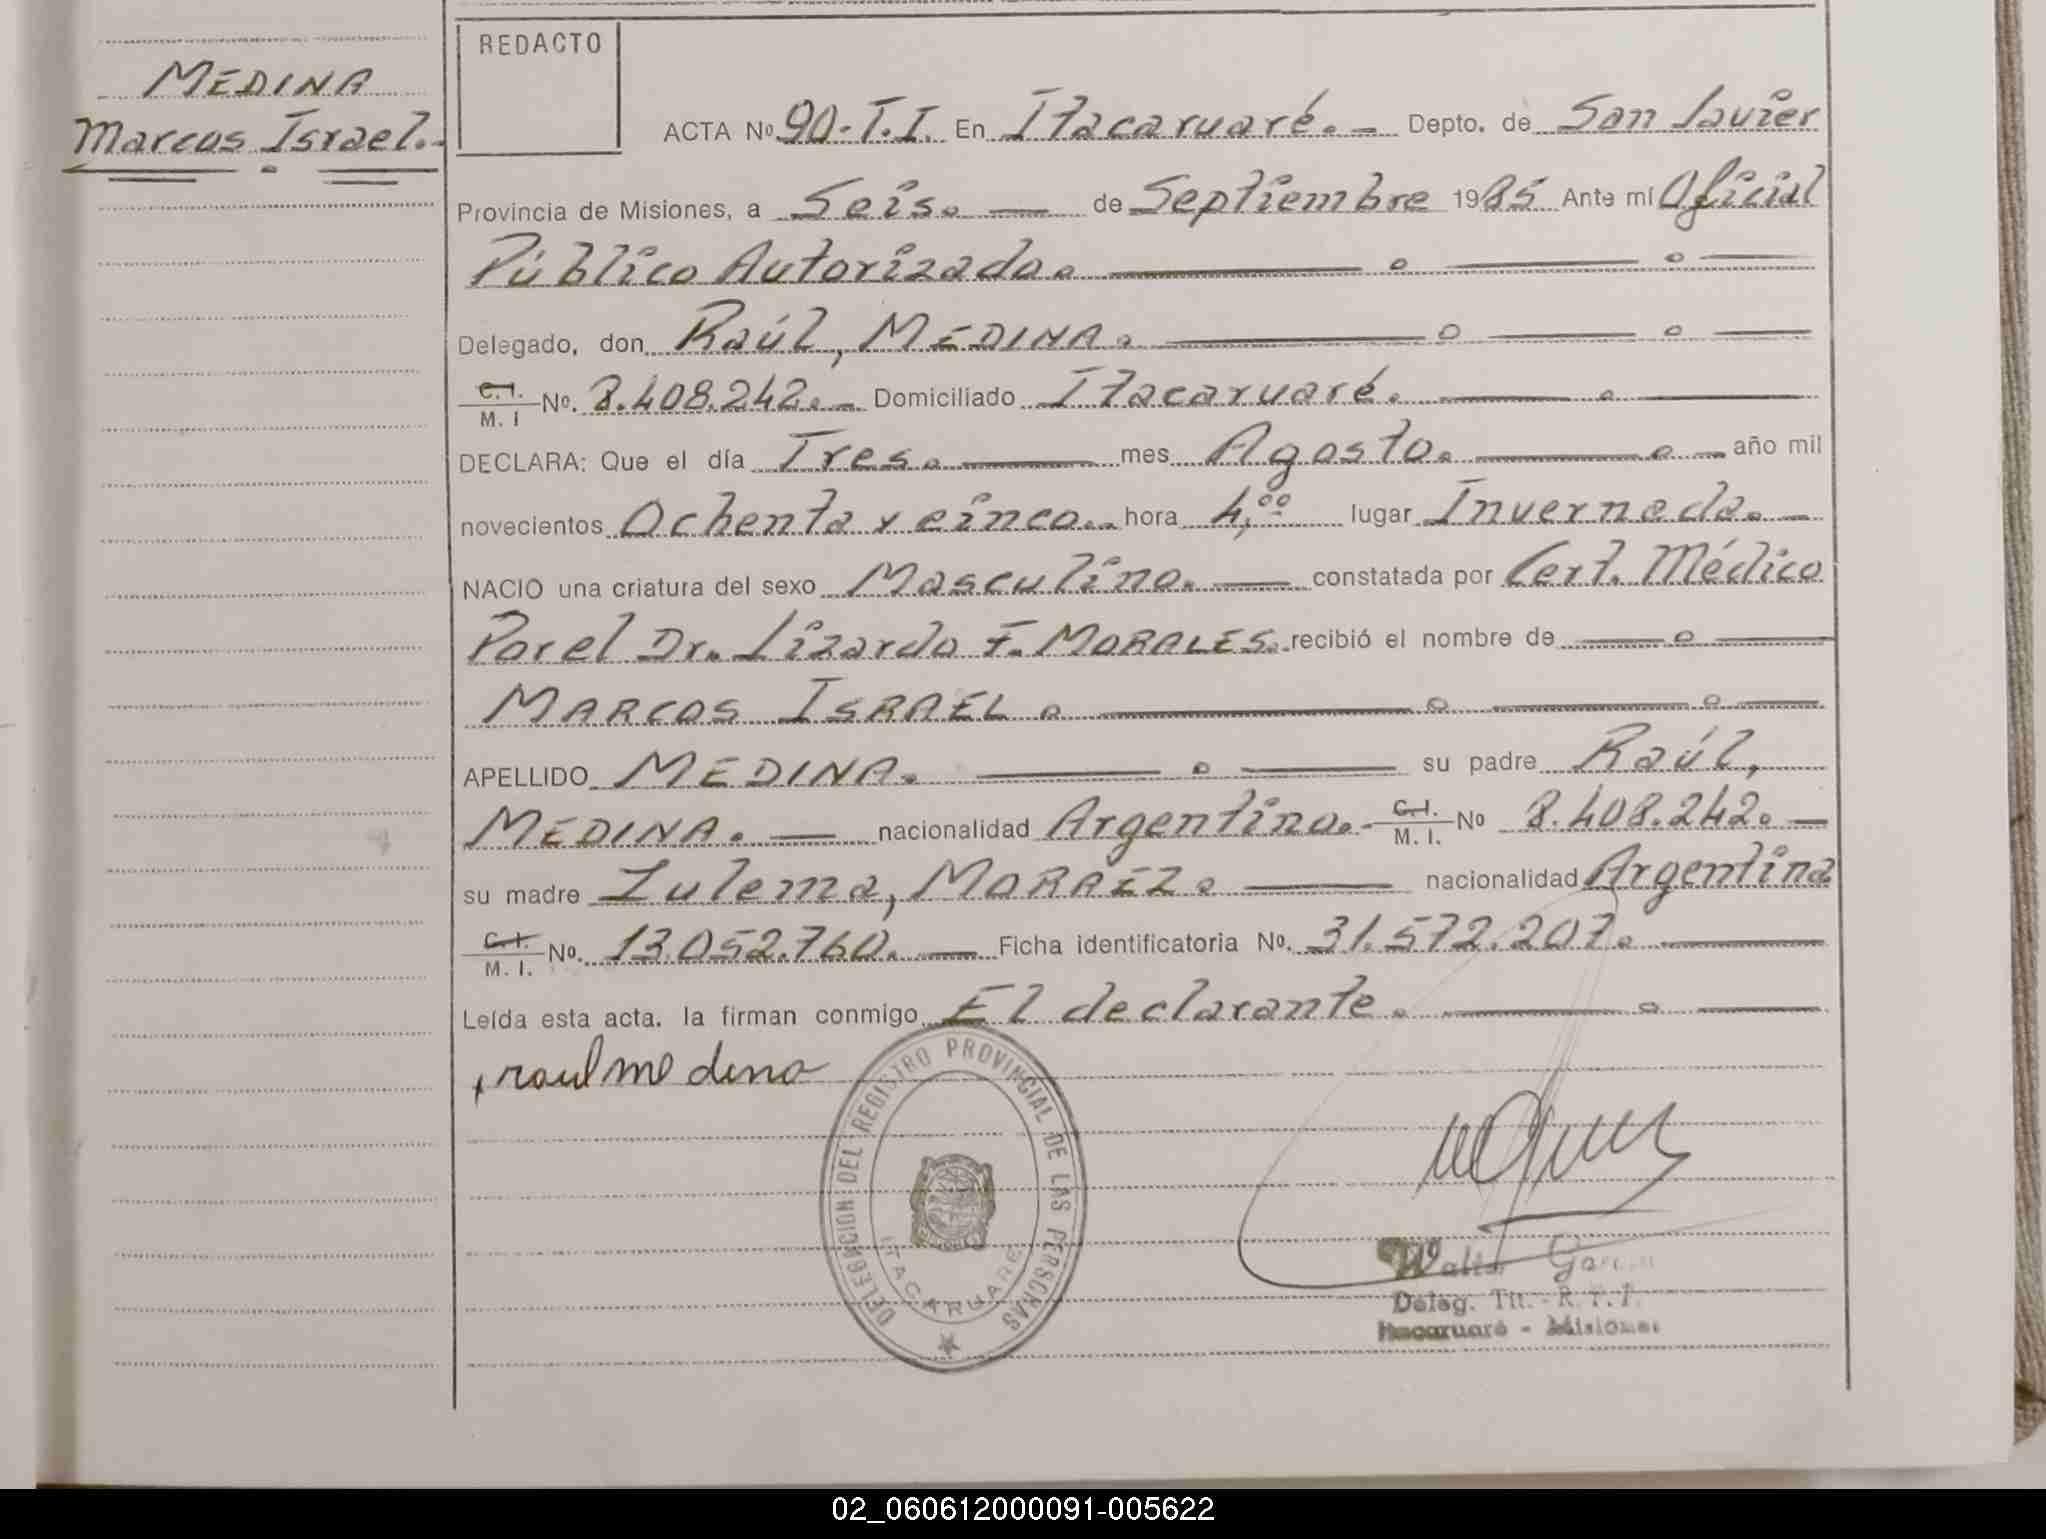 MEDINA
Marcos Israel.-
REDACTO
ACTA Nº 90-T.I. En Itacaruaré.- Depto. de San Javier
Provincia de Misiones, a Seis. — de Septiembre 1985 Ante mí Oficial
Público Autorizado.
Delegado, don Raúl, MEDINA.
C.I. / M. I Nº. 8.408.242.- Domiciliado Itacaruaré.
DECLARA: Que el día Tres. — mes Agosto. — año mil
novecientos Ochenta y cinco.- hora 4,00 lugar Invernada.-
NACIO una criatura del sexo Masculino. — constatada por Cert. Médico
Por el Dr. Lizardo F. MORALES. recibió el nombre de
MARCOS ISRAEL.
APELLIDO MEDINA. — su padre Raúl,
MEDINA. — nacionalidad Argentino.- C.I. / M. I. Nº 8.408.242. —
su madre Zulema, MORAEZ. — nacionalidad Argentina
C.I. / M. I. Nº. 13.052.760. — Ficha identificatoria Nº. 31.572.207. —
Leída esta acta. la firman conmigo El declarante.
raul medina
DELEGACION DEL REGISTRO PROVINCIAL DE LAS PERSONAS
ITACARUARE
Walter
Deleg. Tit. - R. P. I.
Itacaruaré - Misiones
02_060612000091-005622